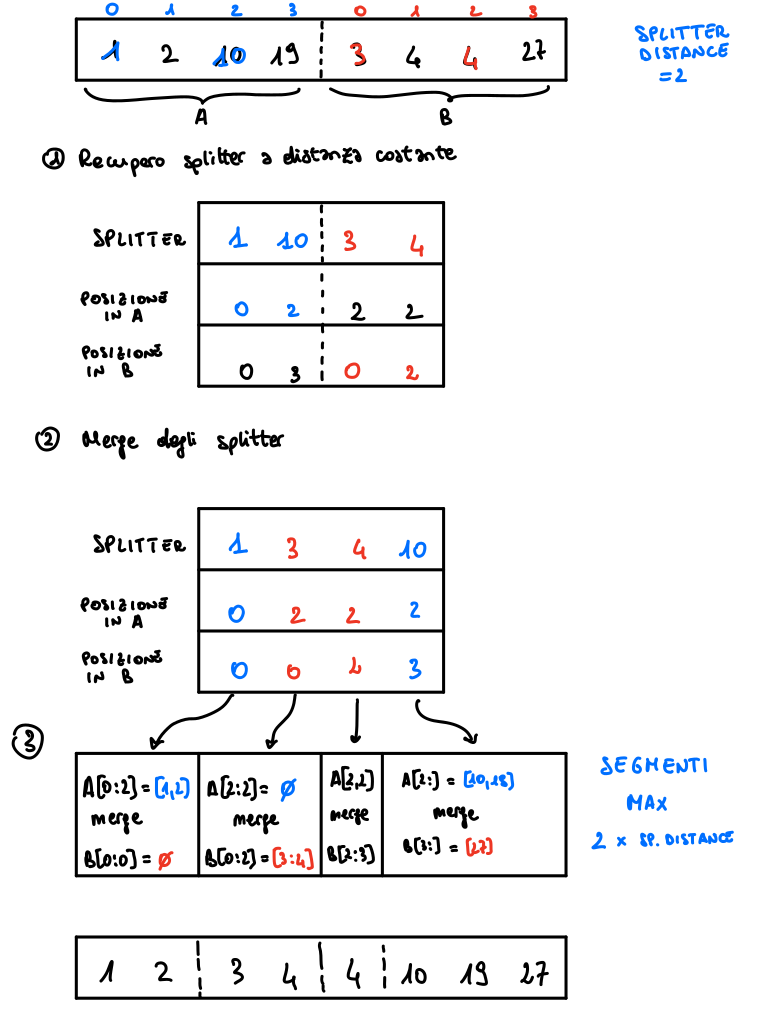 0 1 2 3 0 1 2 3
1 2 10 19 3 4 4 27
SPLITTER
DISTANCE
=2
A B
① Recupero splitter a distanza costante
SPLITTER 1 10 3 4
POSIZIONE
IN A 0 2 2 2
POSIZIONE
IN B 0 3 0 2
② Merge degli splitter
SPLITTER 1 3 4 10
POSIZIONE
IN A 0 2 2 2
POSIZIONE
IN B 0 0 2 3
③
A[0:2]=[1,2]
merge
B[0:0]=ø
A[2:2]=ø
merge
B[0:2]=[3:4]
A[2,2]
merge
B[2:3]
A[2:] = [10,19]
merge
B[3:] = [27]
SEGMENTI
MAX
2 x SP. DISTANCE
1 2 3 4 4 10 19 27